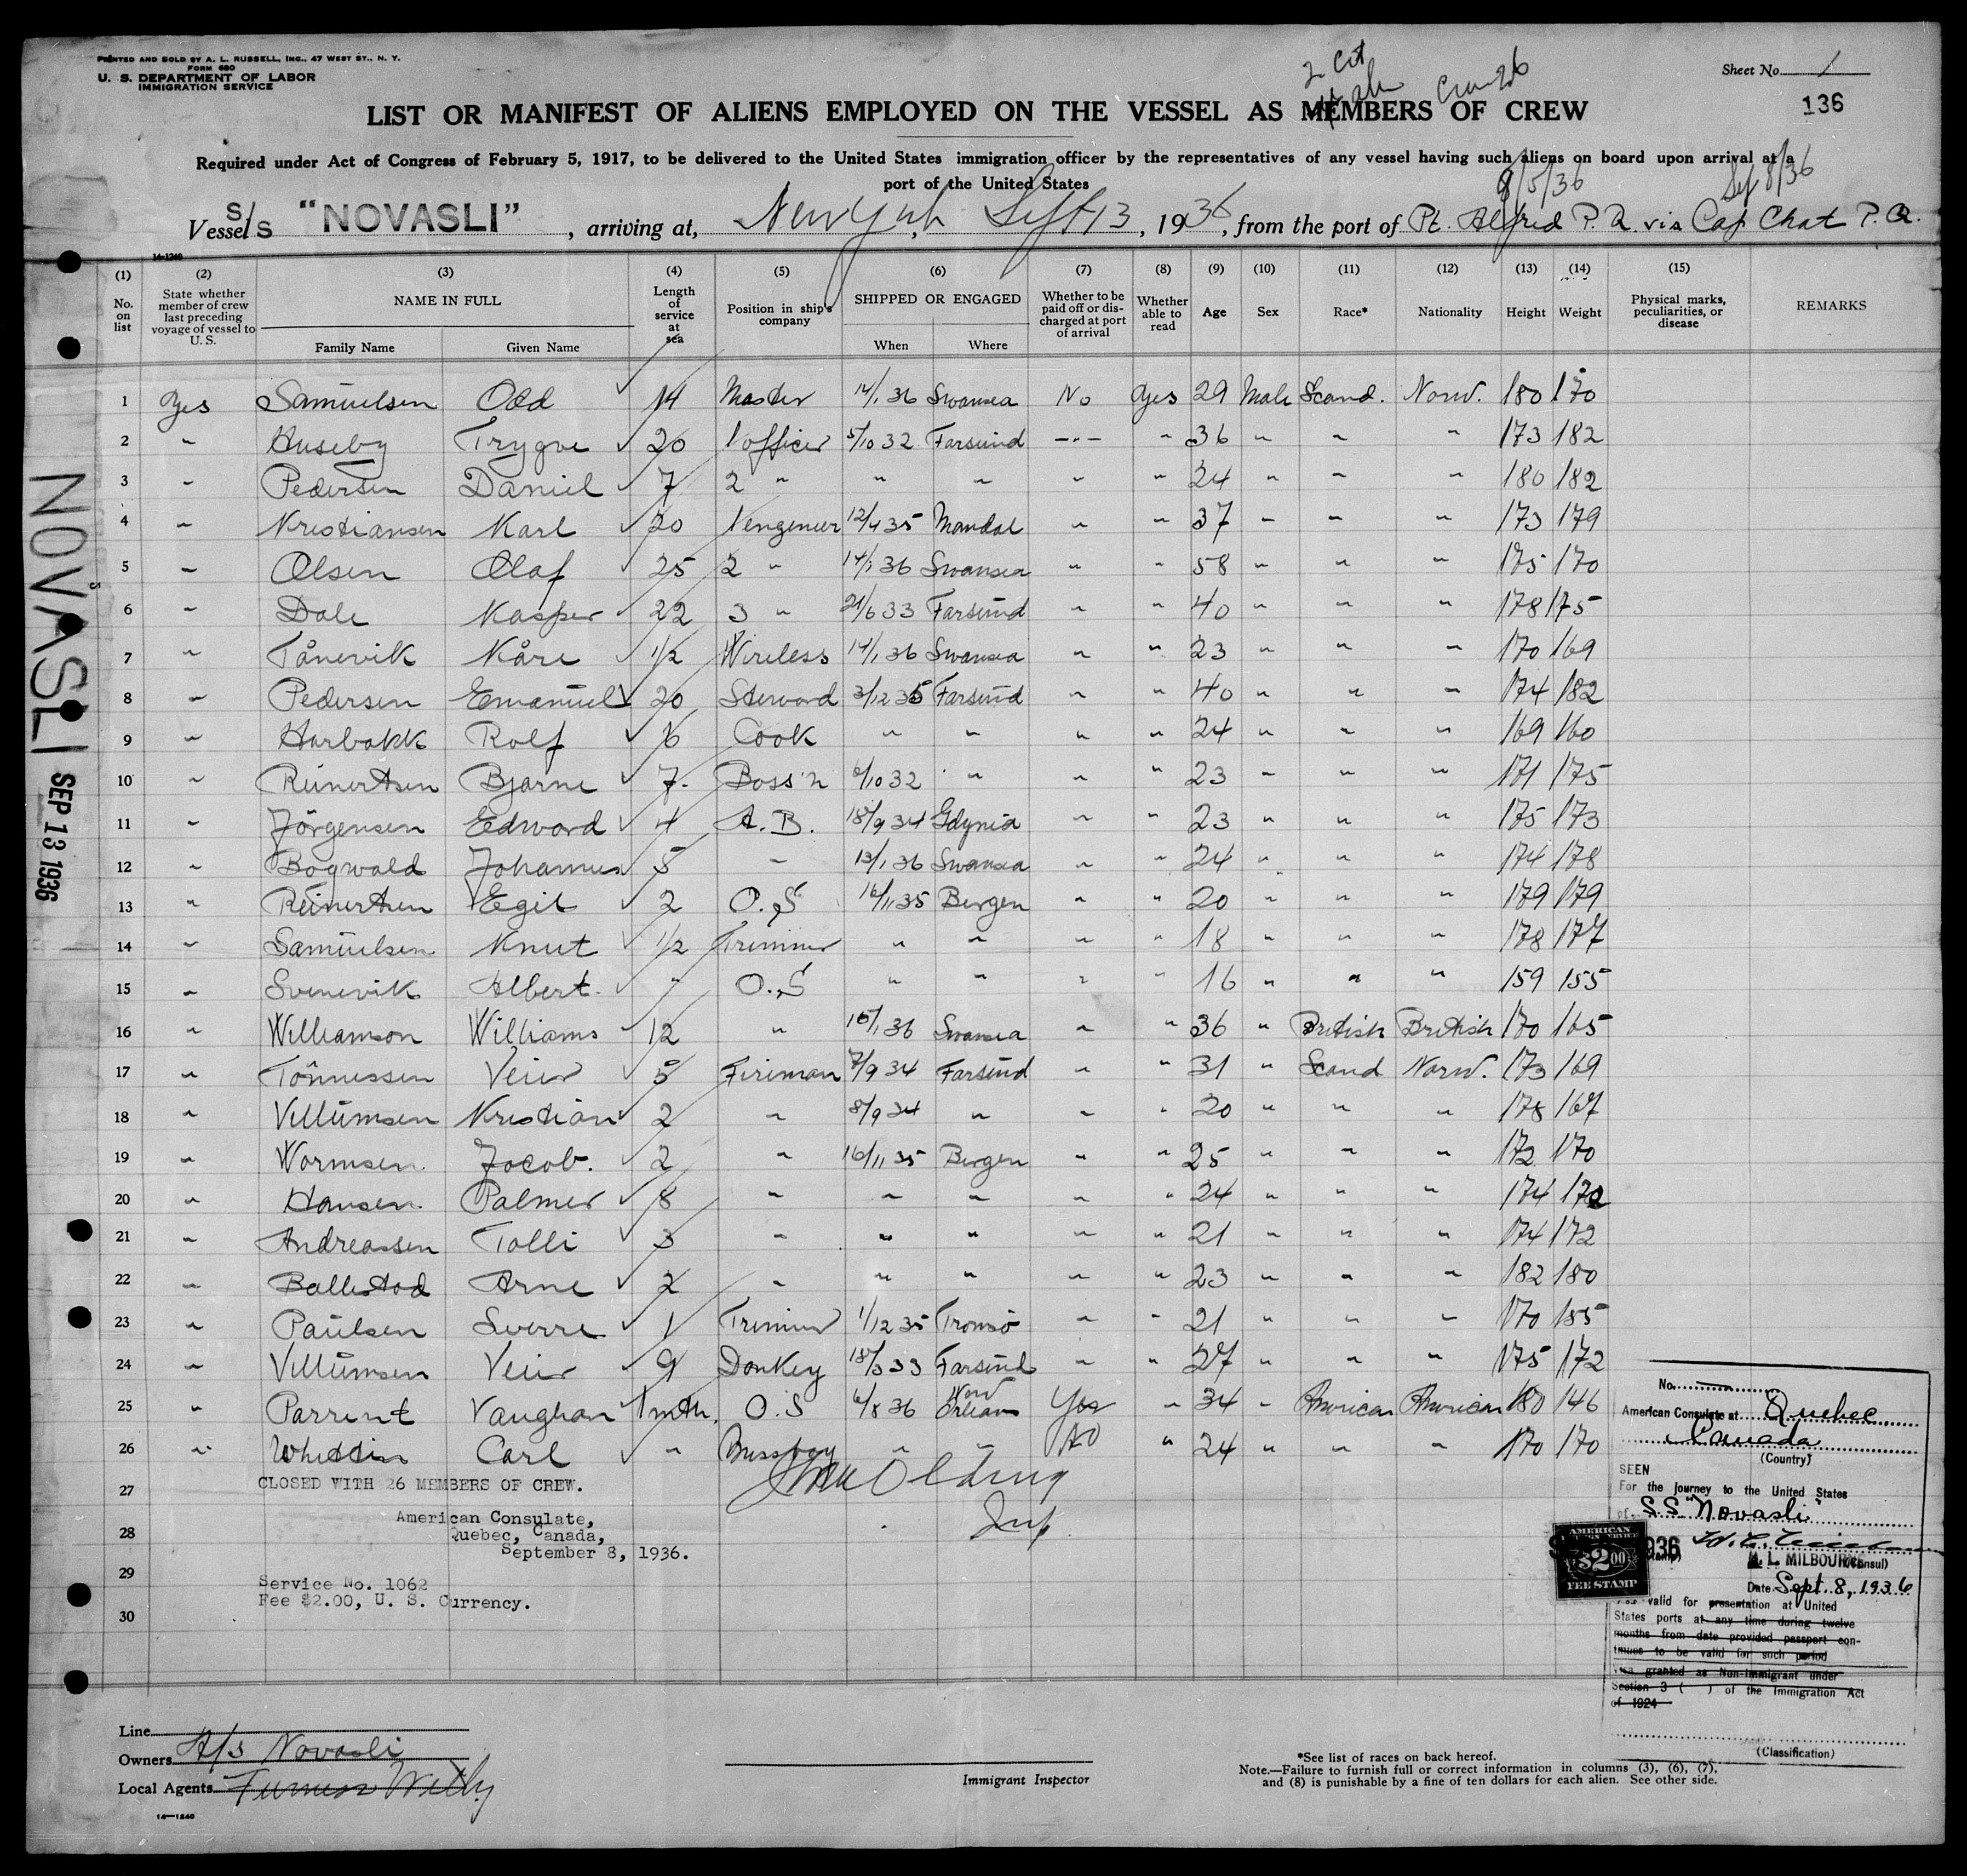 PRINTED AND SOLD BY A. L. RUSSELL, INC., 47 WEST ST., N. Y.
FORM 680
U. S. DEPARTMENT OF LABOR
IMMIGRATION SERVICE
2 Cit
Crew 26
Sheet No. 1
136
LIST OR MANIFEST OF ALIENS EMPLOYED ON THE VESSEL AS MEMBERS OF CREW
Required under Act of Congress of February 5, 1917, to be delivered to the United States immigration officer by the representatives of any vessel having such aliens on board upon arrival at a
port of the United States
8/5/36 Sep 8/36
Vessel S/S "NOVASLI", arriving at, New York, Sept 13, 1936, from the port of Pt. Alfred P. Q. via Cap Chat P. Q.
14-1240
(1) (2) (3) (4) (5) (6) (7) (8) (9) (10) (11) (12) (13) (14) (15)
No. on list
State whether member of crew last preceding voyage of vessel to U. S.
NAME IN FULL
Family Name Given Name
Length of service at sea
Position in ship's company
SHIPPED OR ENGAGED
When Where
Whether to be paid off or discharged at port of arrival
Whether able to read
Age Sex Race* Nationality Height Weight
Physical marks, peculiarities, or disease
REMARKS
1 Yes Samuelsen Odd 14 Master 14/1 36 Swansea No Yes 29 Male Scand. Norw. 180 170
2 " Huseby Trygve 20 1 officer 5/10 32 Farsund -"- " 36 " " " 173 182
3 " Pedersen Daniel 7 2 " " " " " 24 " " " 180 182
4 " Kristiansen Karl 20 1 engenier 12/4 35 Mandal " " 37 " " " 173 179
5 " Olsen Olaf 25 2 " 14/1 36 Swansea " " 58 " " " 175 170
6 " Dale Kasper 22 3 " 21/6 33 Farsund " " 40 " " " 178 175
7 " Tånevik Kåre 1/2 Wireless 14/1 36 Swansea " " 23 " " " 170 169
8 " Pedersen Emanuel 20 Steward 3/12 35 Farsund " " 40 " " " 174 182
9 " Harbakk Rolf 6 Cook " " " " 24 " " " 169 160
10 " Reinertsen Bjarne 7 Boss'n 6/10 32 " " " 23 " " " 171 175
11 " Jörgensen Edward 4 A. B. 18/9 34 Gdynia " " 23 " " " 175 173
12 " Bogwald Johannes 5 " 13/1 36 Swansea " " 24 " " " 174 178
13 " Reinertsen Egil 2 O. S 16/11 35 Bergen " " 20 " " " 179 179
14 " Samuelsen Knut 1/2 Trimmer " " " " 18 " " " 178 177
15 " Svenevik Albert " O. S " " " " 16 " " " 159 155
16 " Williamson Williams 12 " 15/1 36 Swansea " " 36 " British British 170 165
17 " Tönnessen Veier 5 Fireman 7/9 34 Farsund " " 31 " Scand Norw. 173 169
18 " Villumsen Kristian 2 " 8/9 34 " " " 20 " " " 178 167
19 " Wormsen Jacob. 2 " 16/11 35 Bergen " " 25 " " " 172 170
20 " Hansen Palmer 8 " " " " " 24 " " " 174 172
21 " Andreassen Tolli 3 " " " " " 21 " " " 174 172
22 " Ballestad Arne 2 " " " " " 23 " " " 182 180
23 " Paulsen Sverre 1 Trimmer 1/12 35 Tromsö " " 21 " " " 170 185
24 " Villumsen Veier 9 Donkey 18/3 33 Farsund " " 27 " " " 175 172
25 " Parrent Vaughan 1 mth. O. S 6/8 36 New Orleans Yes " 34 " American American 180 146
26 " Whettin Carl " Messboy " " No " 24 " " " 170 170
27 CLOSED WITH 26 MEMBERS OF CREW.
American Consulate,
28 Quebec, Canada,
September 8, 1936.
29
Service No. 1062
Fee $2.00, U. S. Currency.
30
Insp.
NOVASLI
SEP 13 1936
No.
American Consulate at Quebec,
Canada
(Country)
SEEN
For the journey to the United States
of S.S "Novasli"
AMERICAN
$2.00
FEE STAMP
M. L. MILBOURNE
(Consul)
Date Sept. 8, 1936
valid for presentation at United
States ports at any time during twelve
months from date provided passport con-
tinues to be valid for such period
Visa granted as Non-Immigrant under
Section 3 ( ) of the Immigration Act
of 1924
(Classification)
Line
Owners A/S Novasli
Local Agents Furness Withy
14-1240
Immigrant Inspector
*See list of races on back hereof.
Note.—Failure to furnish full or correct information in columns (3), (6), (7),
and (8) is punishable by a fine of ten dollars for each alien. See other side.